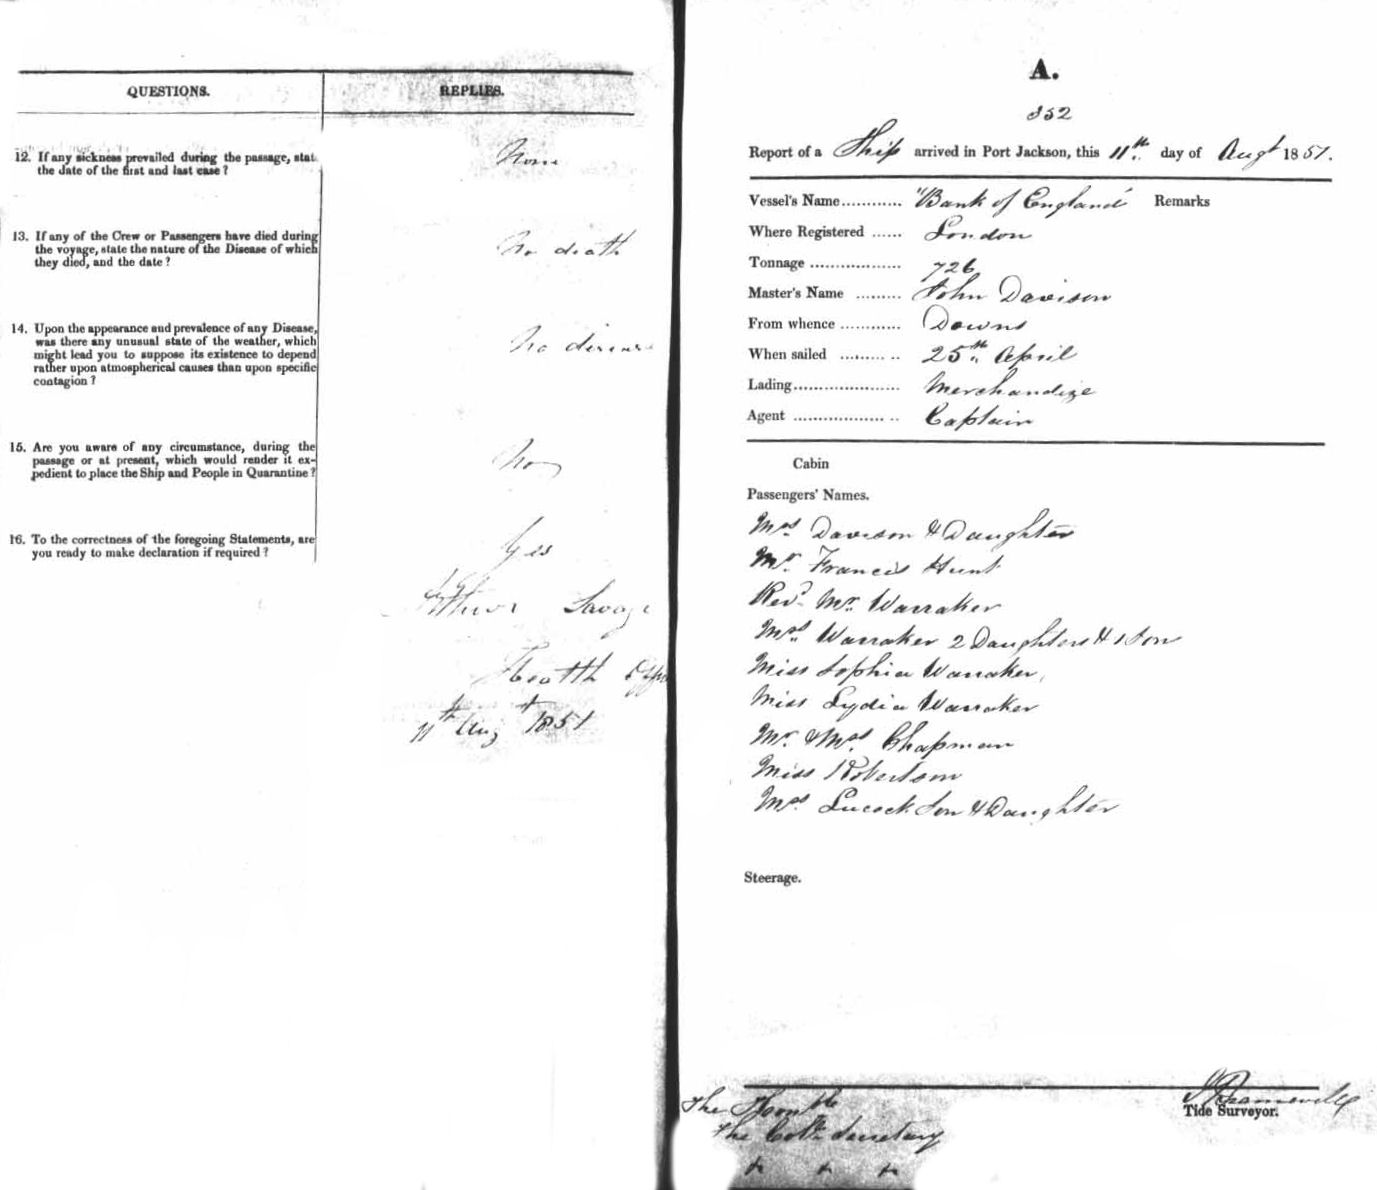 QUESTIONS.
REPLIES.
12. If any sickness prevailed during the passage, stat
the date of the first and last case ?
None
13. If any of the Crew or Passengers have died during
the voyage, state the nature of the Disease of which
they died, and the date ?
No death
14. Upon the appearance and prevalence of any Disease,
was there any unusual state of the weather, which
might lead you to suppose its existence to depend
rather upon atmospherical causes than upon specific
contagion ?
No disease
15. Are you aware of any circumstance, during the
passage or at present, which would render it ex-
pedient to place the Ship and People in Quarantine ?
No
16. To the correctness of the foregoing Statements, are
you ready to make declaration if required ?
Yes
Savage
Health
11th Aug 1851
A.
352
Report of a Ship arrived in Port Jackson, this 11th day of Augt 1851.
Vessel's Name............ "Bank of England" Remarks
Where Registered ...... London
Tonnage .................. 726
Master's Name ......... John Davison
From whence ............ Downs
When sailed ......... .. 25th April
Lading..................... Merchandize
Agent .................. .. Captain
Cabin
Passengers' Names.
Mrs Davison & Daughter
Mr. Francis Hunt
Revd. Mr. Warraker
Mrs Warraker 2 Daughters & 1 Son
Miss Sophia Warraker,
Miss Lydia Warraker
Mr. & Mrs. Chapman
Miss Robertson
Mrs Lucock Son & Daughter
Steerage.
Tide Surveyor.
The Honble
The Col. Secretary